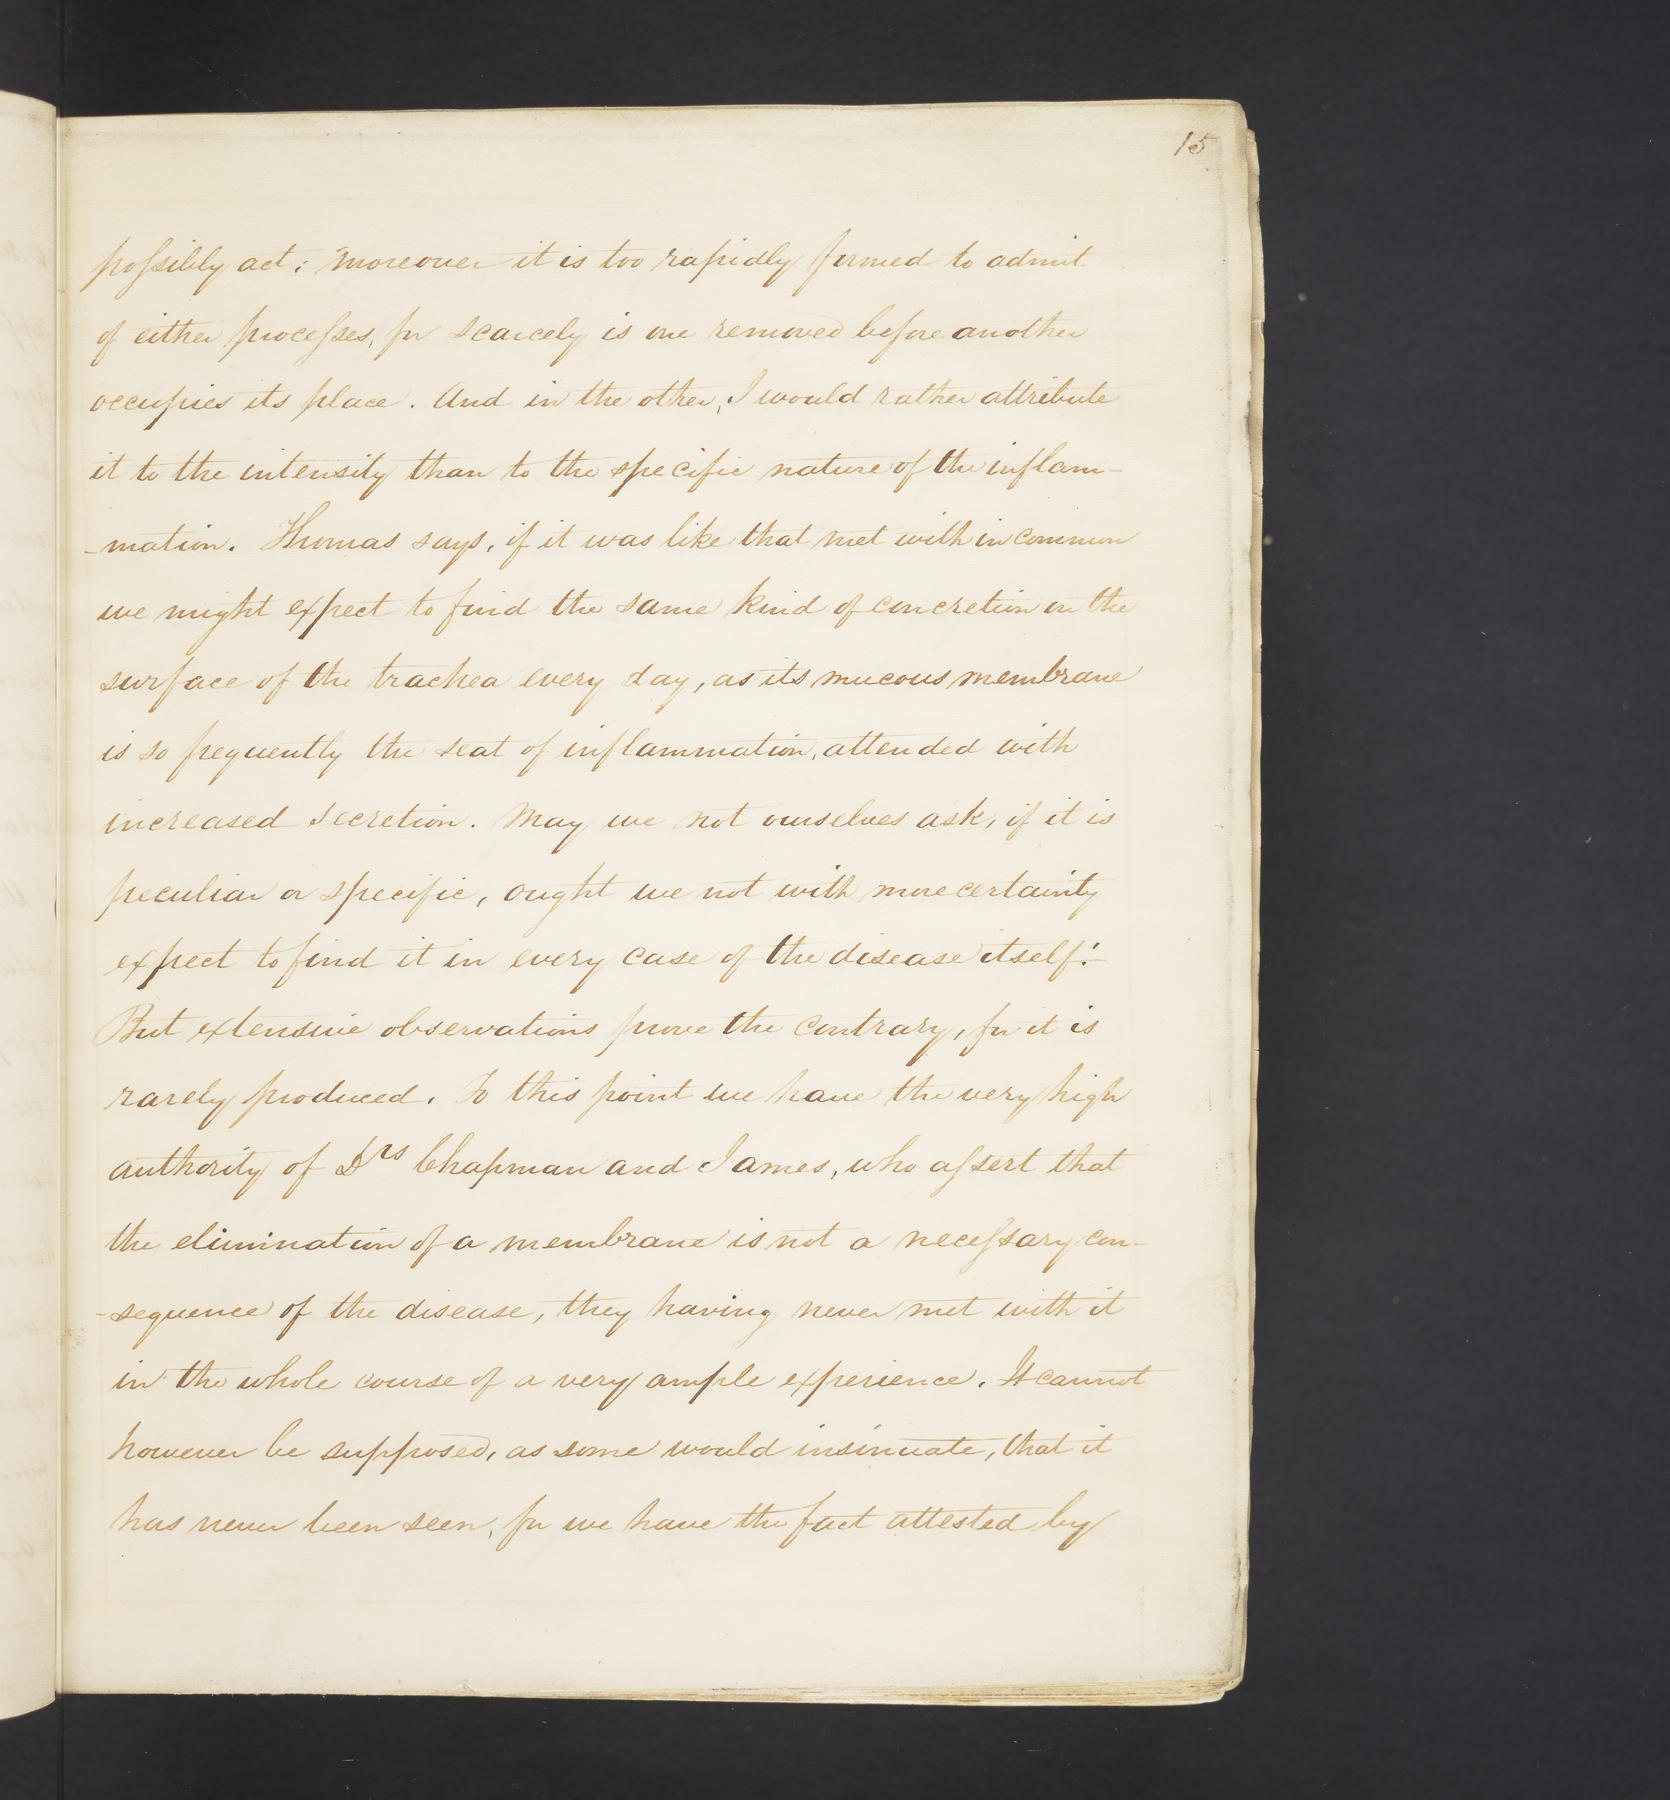 15
possibly act; moreover it is too rapidly formed to admit
of either processes, for scarcely is one removed before another
occupies its place. And in the other, I would rather attribute
it to the intensity than to the specific nature of the inflam-
-mation. Thomas says, if it was like that met with in common
we might expect to find the same kind of concretion on the
surface of the trachea every day, as its mucous membrane
is so frequently the seat of inflammation, attended with
increased secretion. May we not ourselves ask, if it is
peculiar or specific, ought we not with more certainty
expect to find it in every case of the disease itself?
But extensive observations prove the contrary, for it is
rarely produced. To this point we have the very high
authority of Drs Chapman and James, who assert that
the elimination of a membrane is not a necessary con-
-sequence of the disease, they having never met with it
in the whole course of a very ample experience. It cannot
however be supposed, as some would insinuate, that it
has never been seen, for we have the fact attested by